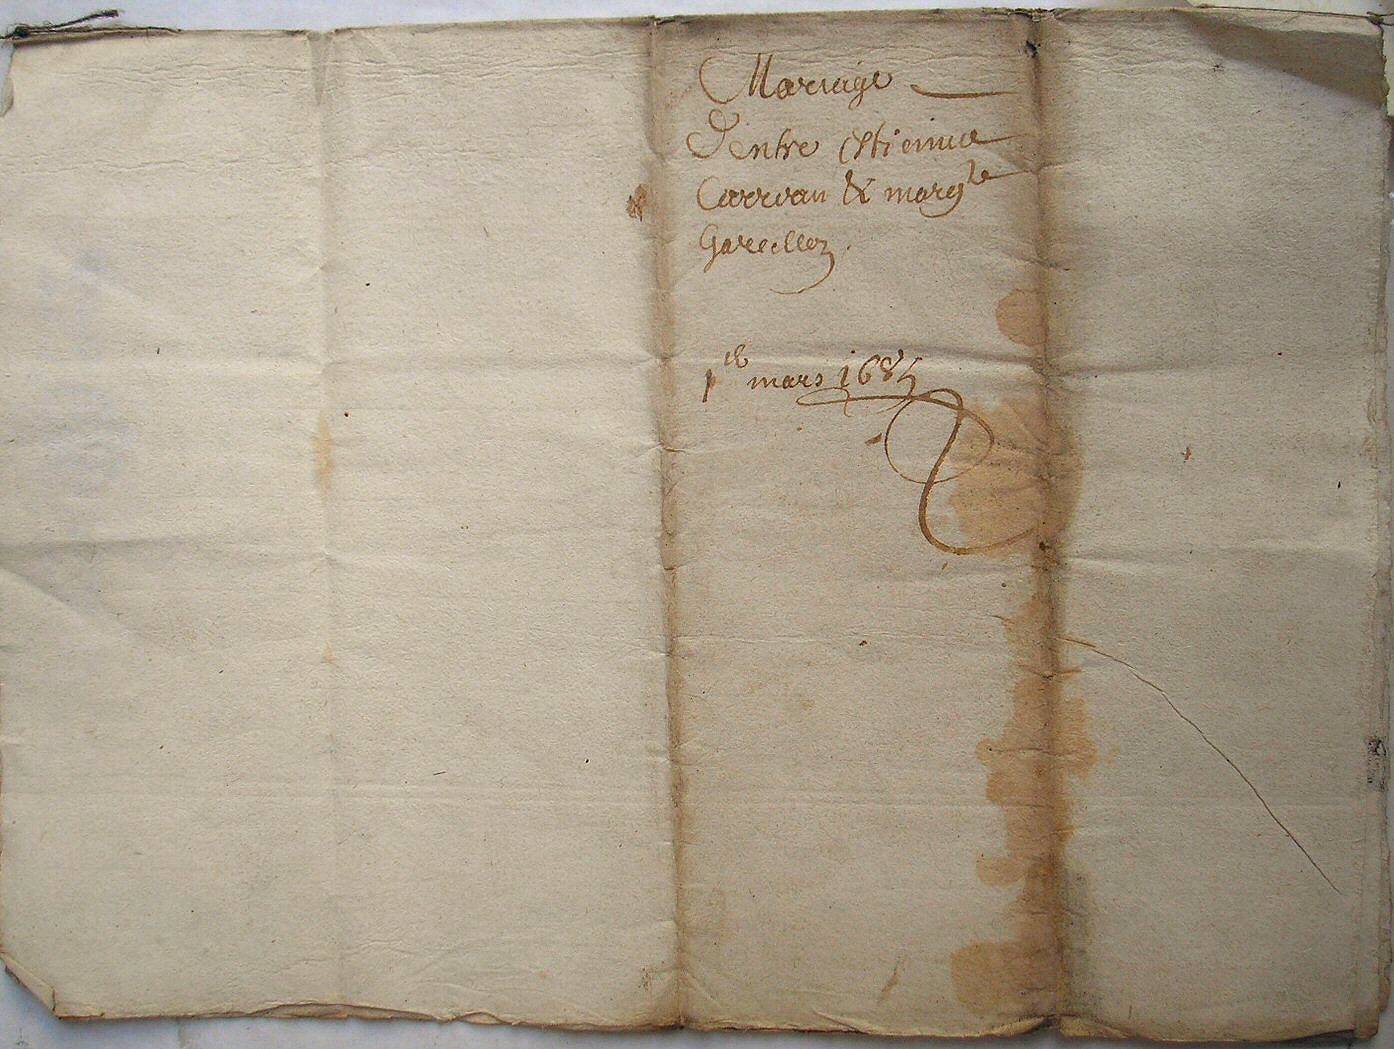 Mariage
D'entre Estienne
Carrvau & marg^te
Garcellon.
p^er mars 1685